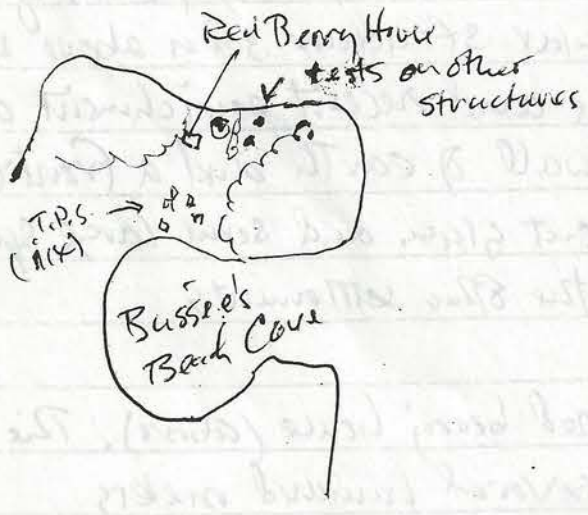 Red Berry House
tests on other
structures
T.P.S.
Bussie's
Beach Cove